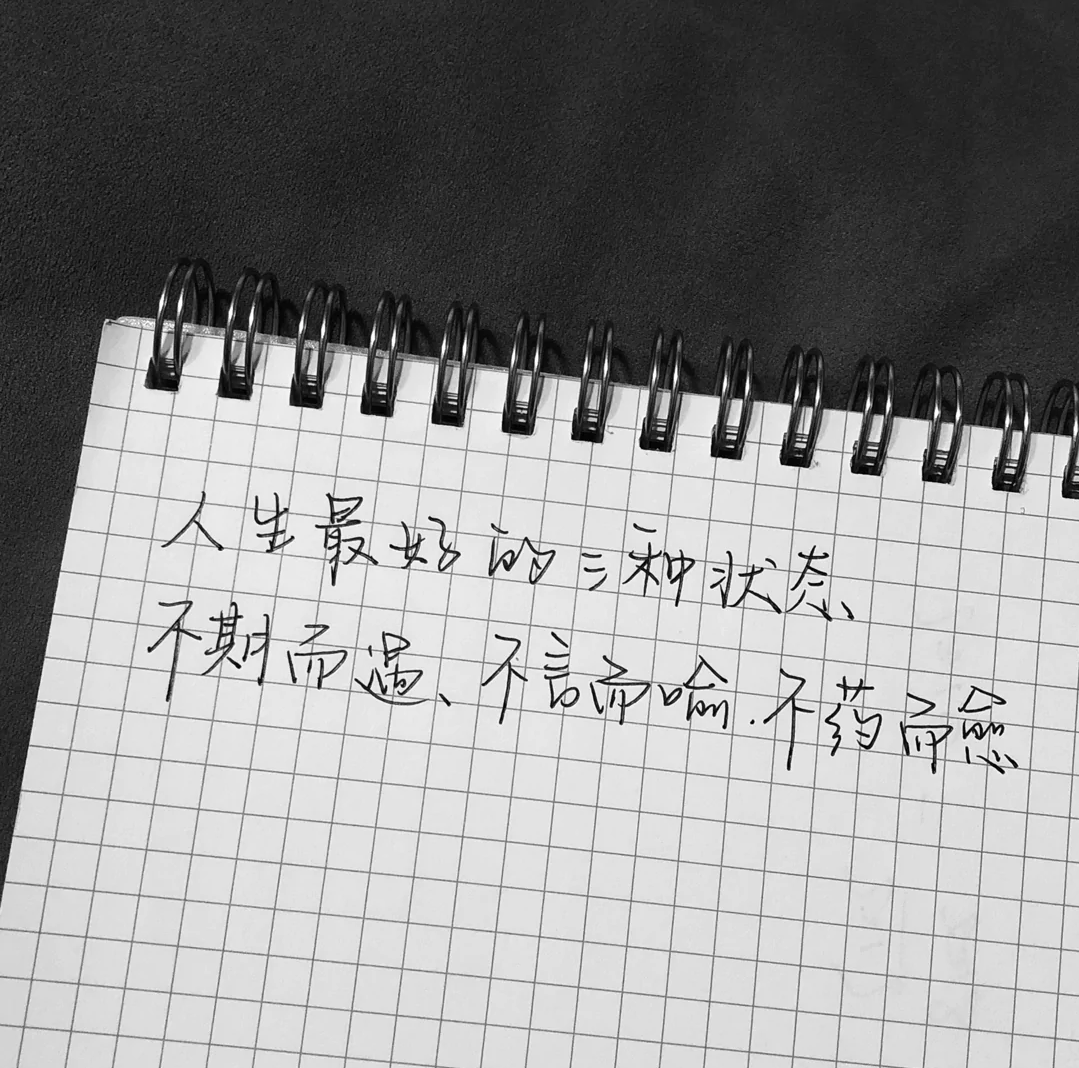 人生最好的三种状态
不期而遇、不言而喻.不药而愈